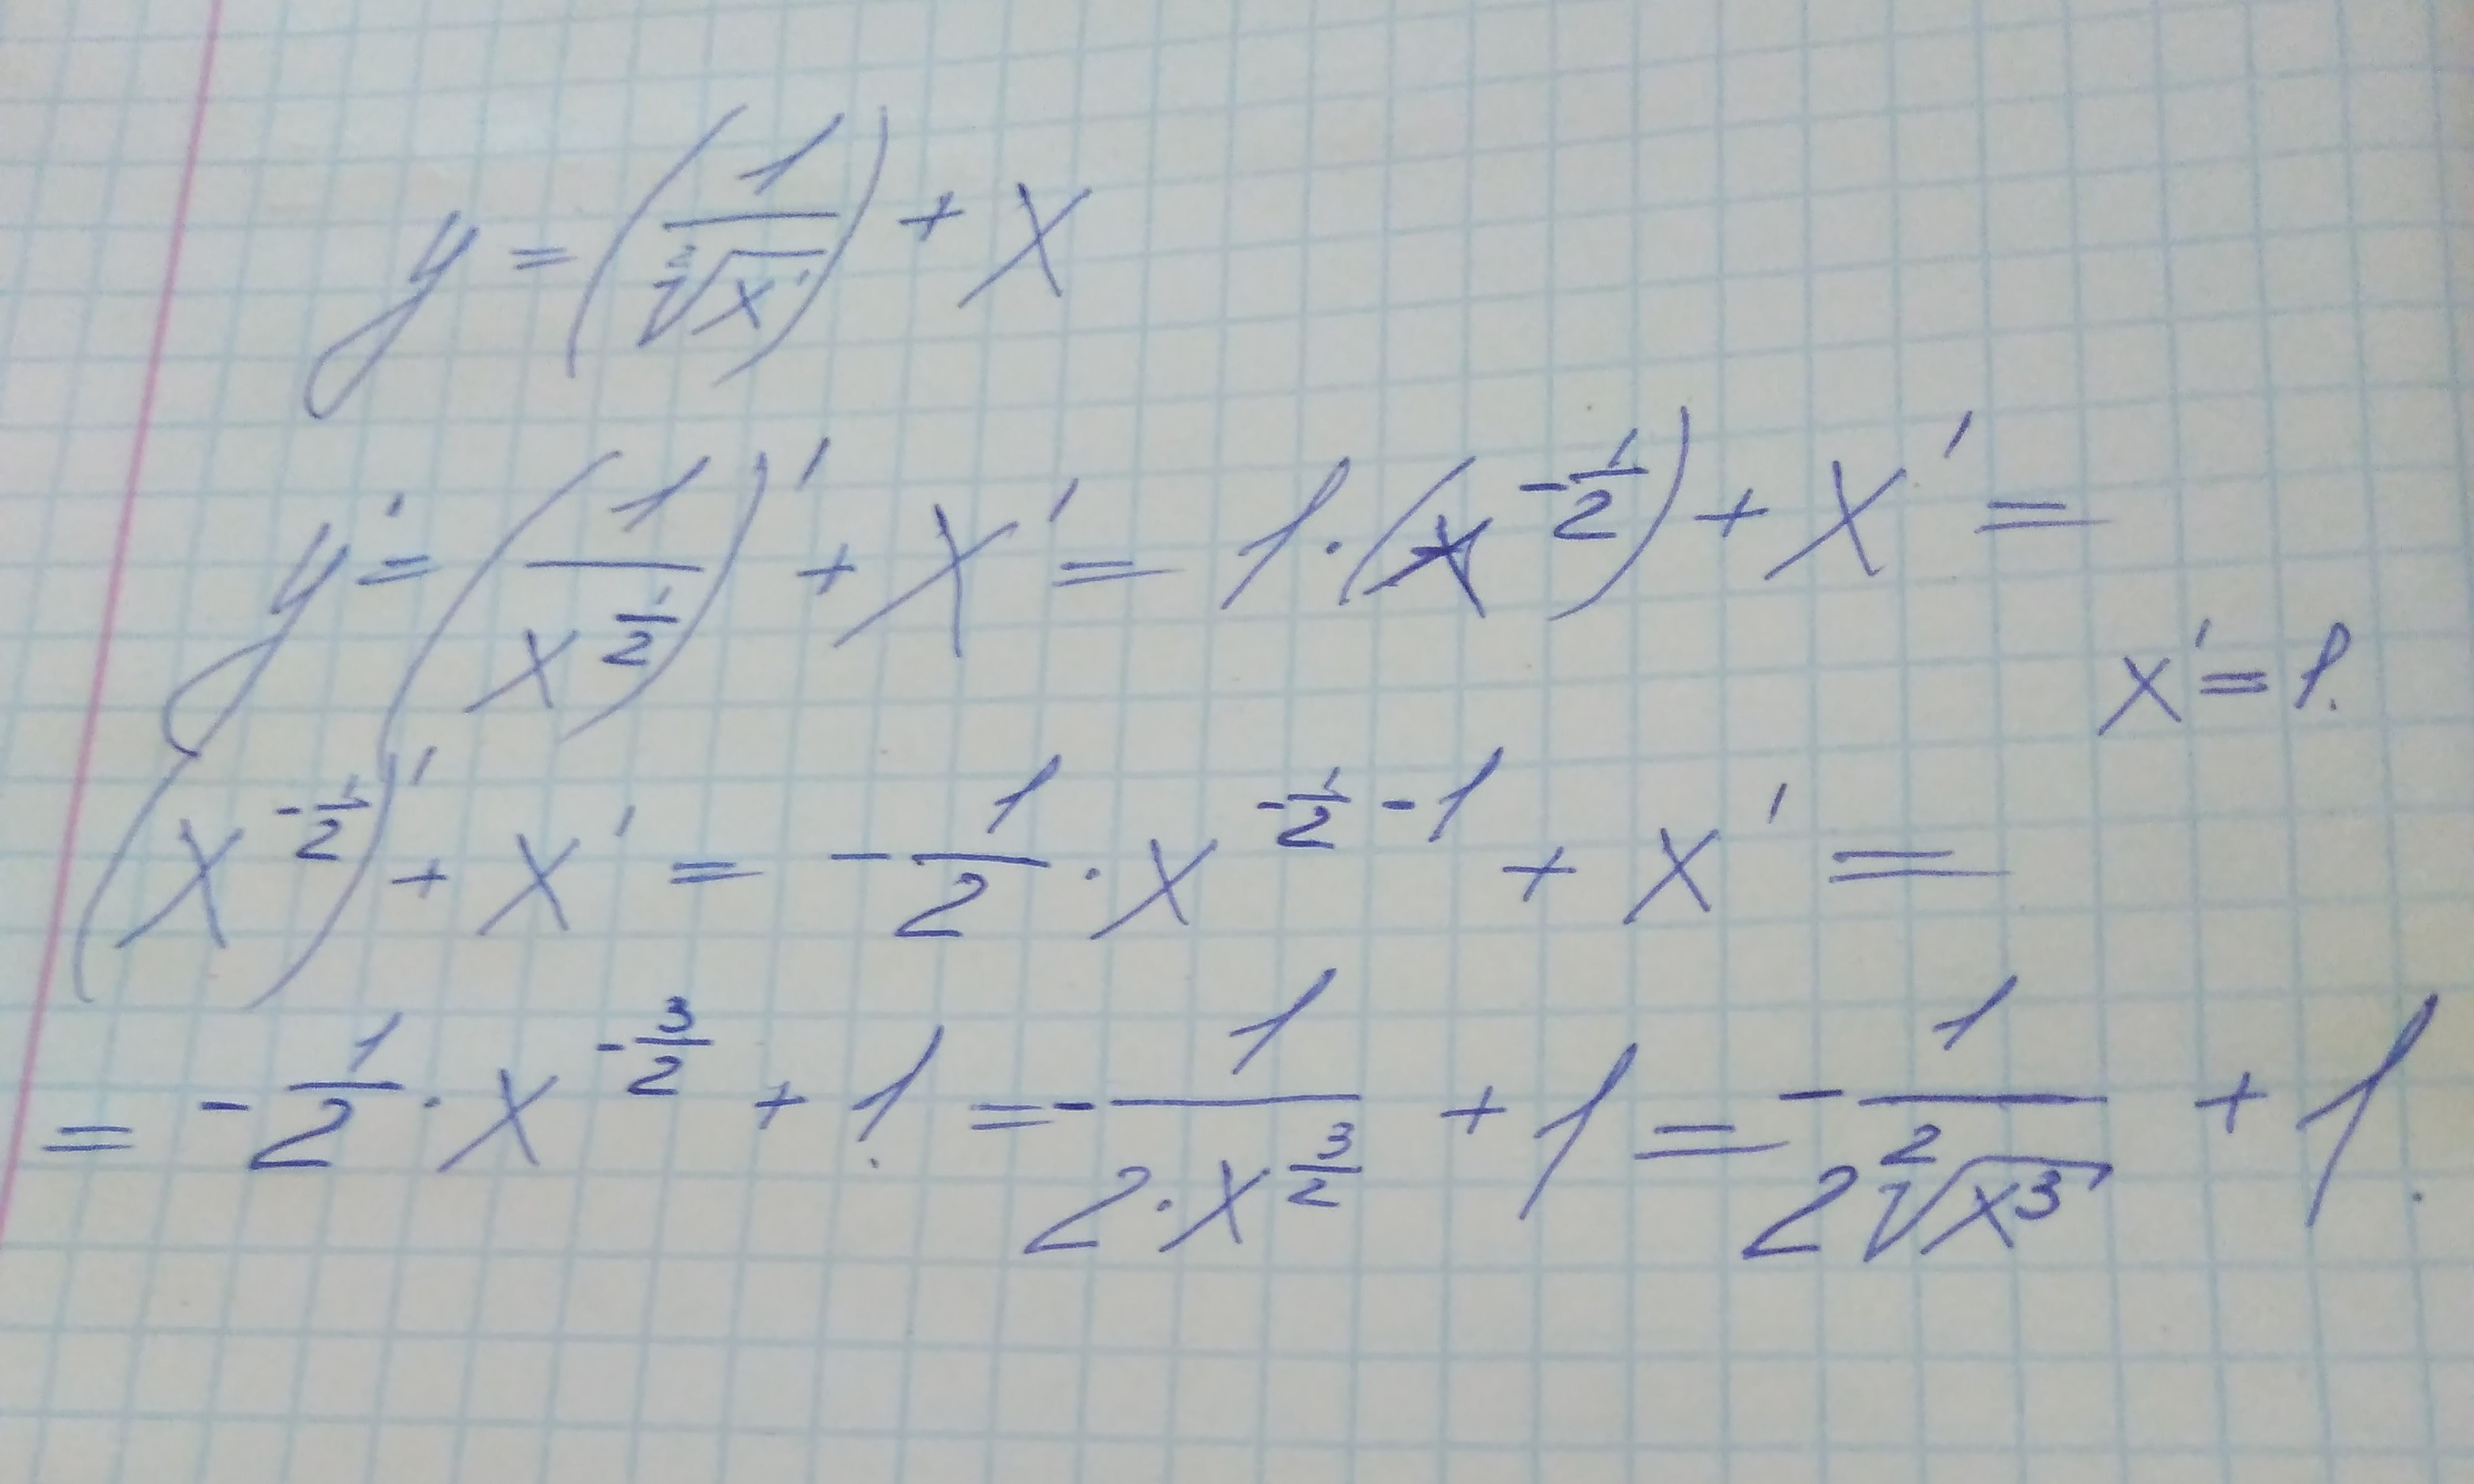 y = (1/²√x) + x
y' = (1/x^(1/2))' + x' = 1·(x^(-1/2)) + x' =
x' = 1.
(x^(-1/2))' + x' = -1/2 · x^(-1/2 - 1) + x' =
= -1/2 · x^(-3/2) + 1. = -1/(2·x^(3/2)) + 1 = -1/(2 ²√x³) + 1.